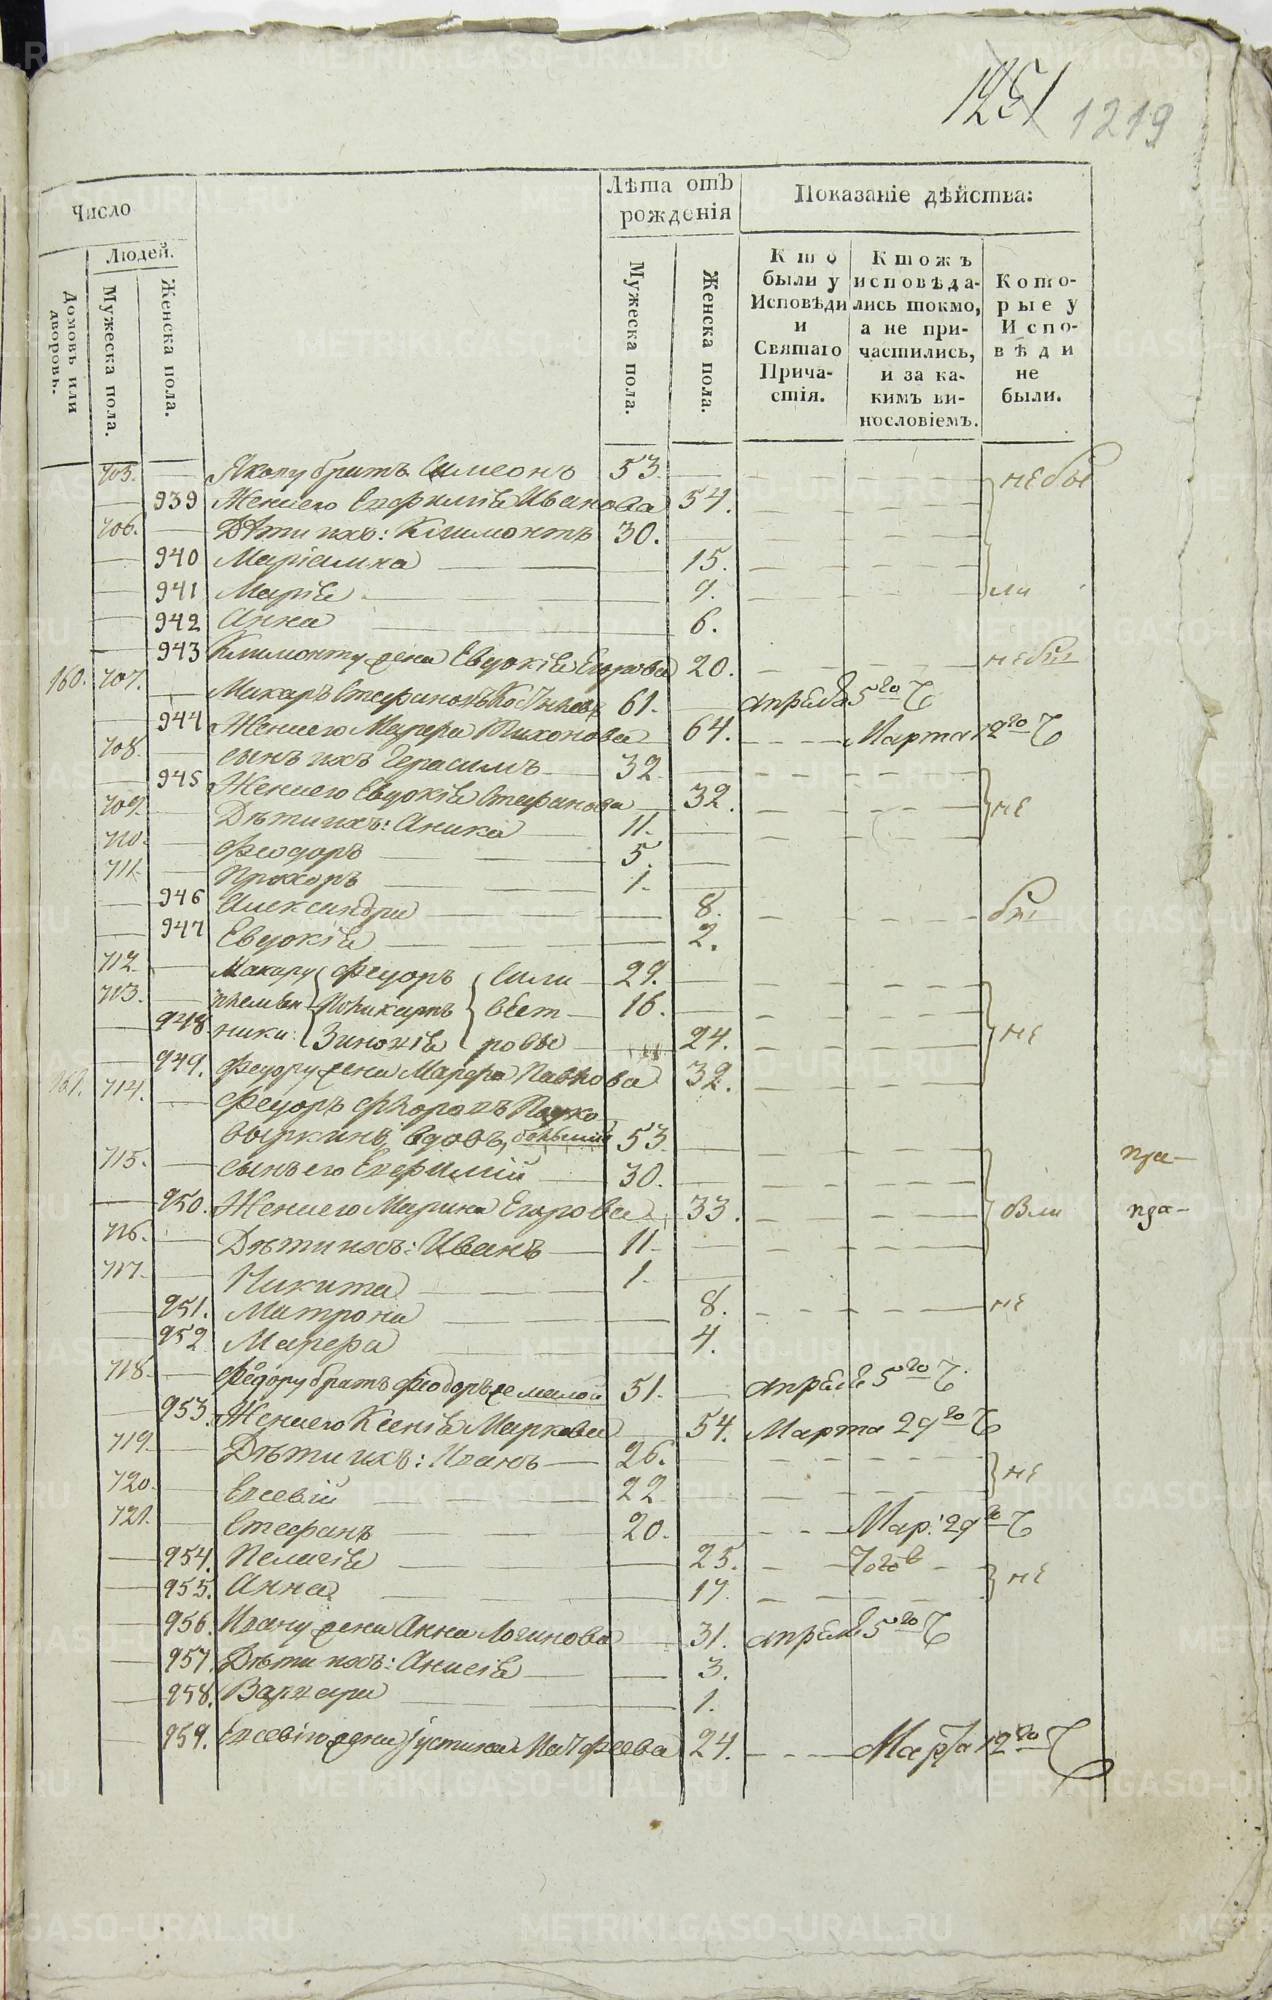 1251 1219
Число
Людей.
Домовъ или дворовъ.
Мужеска пола.
Женска пола.
Лѣта отъ рожденія
Мужеска пола.
Женска пола.
Показаніе дѣйства:
Кто были у Исповѣди и Святаго Причастія.
Ктожъ исповѣдались токмо, а не причастились, и за какимъ винословіемъ.
Которые у Исповѣди не были.
705. Якову братъ Симеонъ 53. не бы
939 Жена его Евфимія Иванова 54.
706. Дѣти ихъ: Климонтъ 30.
940 Маріамна 15.
941 Марія 9. ли
942 Анна 6.
943 Климонту жена Евдокія Егорова 20. не бы
160. 707. Макаръ Стефановъ 61. апрѣля 5го Ч
944 Жена его Мавра Тихонова 64. Марта 12го Ч
708. сынъ ихъ Герасимъ 32
945 Жена его Евдокія Стефанова 32. не
709. Дѣти ихъ: Аника 11.
710. Феодоръ 5.
711. Прохоръ 1.
946 Александра 8. бы
947 Евдокія 2.
712. Макару Федоръ Сили 29.
713. племян Поликарпъ вест 16.
948. ники: Зиновія ровы 24. не
949. Федору жена Мавра Павлова 32.
161. 714. Федоръ Фроловъ
вдовъ, большій 53
715. сынъ его Евфимій 30.
950. Жена его Марина Егорова 33. были
716. Дѣти ихъ: Иванъ 11.
717. Никита 1.
951. Матрона 8. не
952 Мавра 4.
718. Федору братъ Феодоръ же малой 51. апрѣля 5го Ч.
953. Жена его Ксенія Маркова 54. Марта 29го Ч
719. Дѣти ихъ: Иванъ 26.
720. Евсевій 22 не
721. Стефанъ 20. Мар. 29го Ч
954. Пелагія 25. Тогов
955. Анна 17. не
956. Ивану жена Анна Логинова 31. апрѣля 5го Ч
957. Дѣти ихъ: Анисія 3.
958. Варвара 1.
959. Евсевію жена Іустина Матфеева 24. Марта 12го Ч